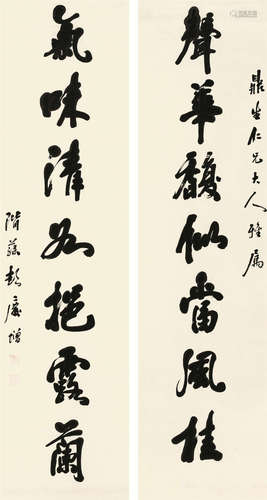 鼎生仁兄大人雅属
聲華馥似當風桂
氣味清如挹露蘭
階蓀彭慶增